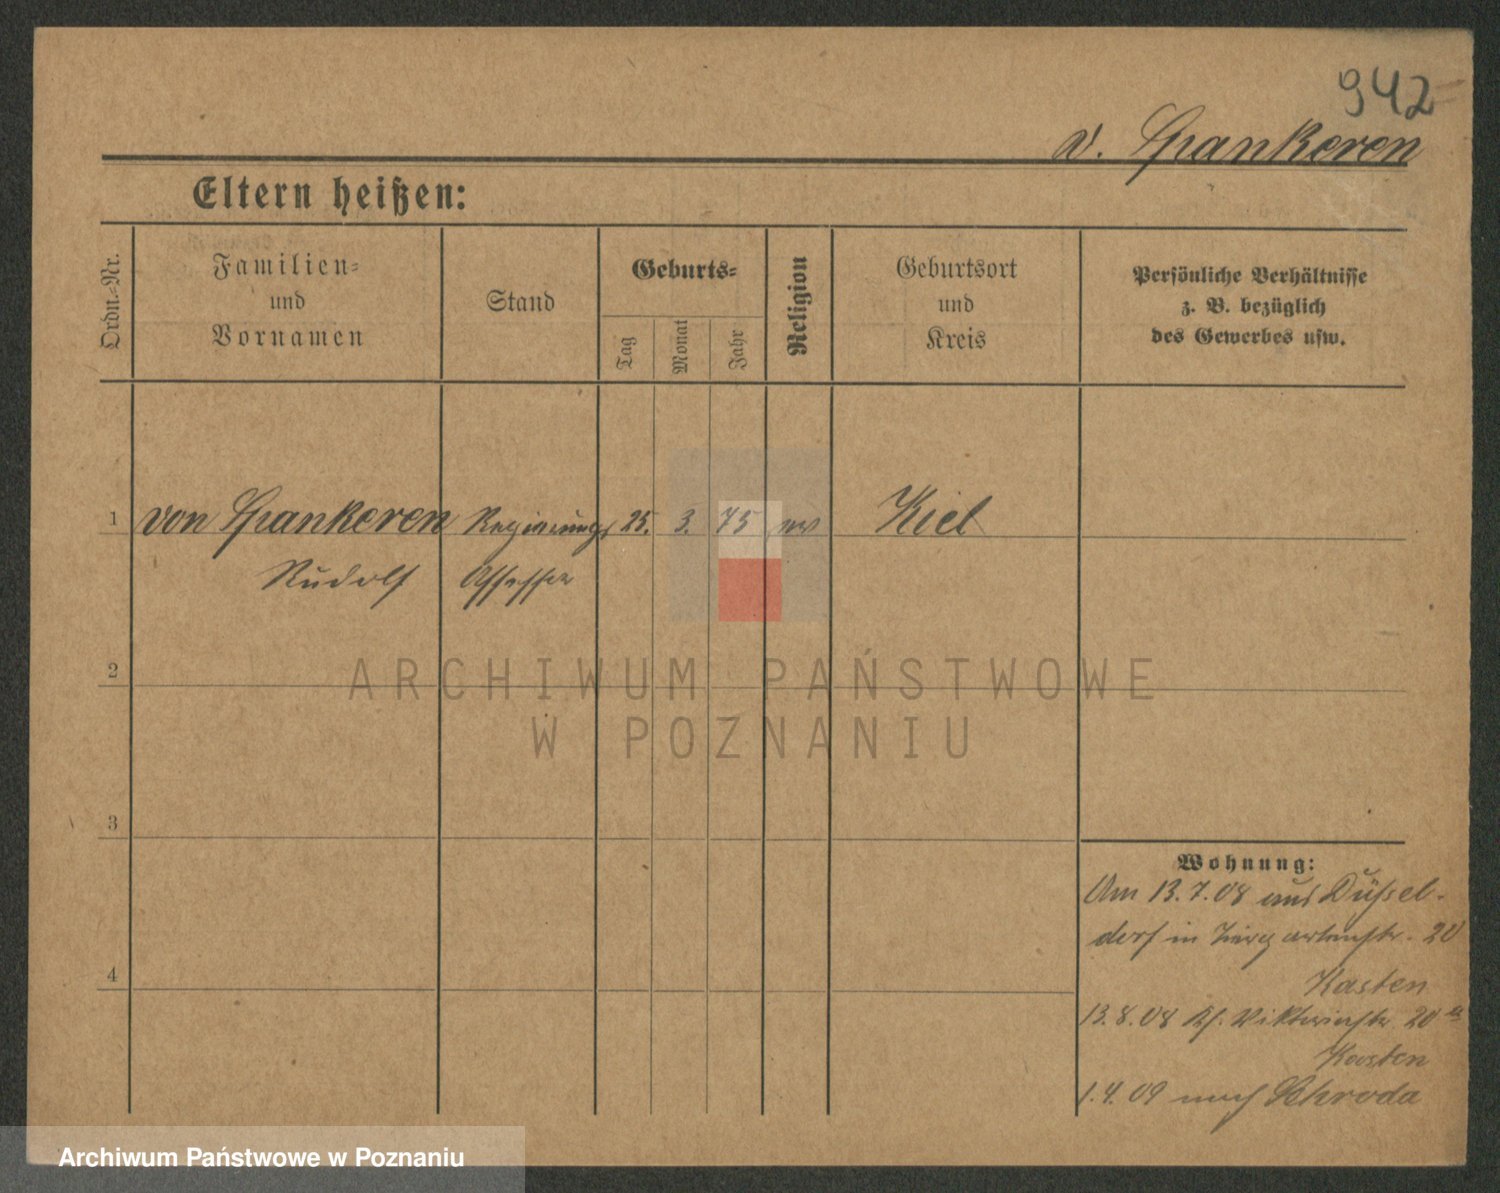 942
v. Spankeren
Eltern heißen:
Ordn.-Nr.
Familien-
und
Vornamen
Stand
Geburts-
Tag
Monat
Jahr
Religion
Geburtsort
und
Kreis
Persönliche Verhältnisse
z. B. bezüglich
des Gewerbes usw.
1 von Spankeren Regierungs 25. 3. 75 ev Kiel
Rudolf Assessor
2
3
4
Wohnung:
Am 13.7.08 aus Düssel-
dorf in Tiergartenstr. 20
Kasten
13.8.08 Viktoriastr 20
1.4.09 nach Schroda
ARCHIWUM PAŃSTWOWE
W POZNANIU
Archiwum Państwowe w Poznaniu